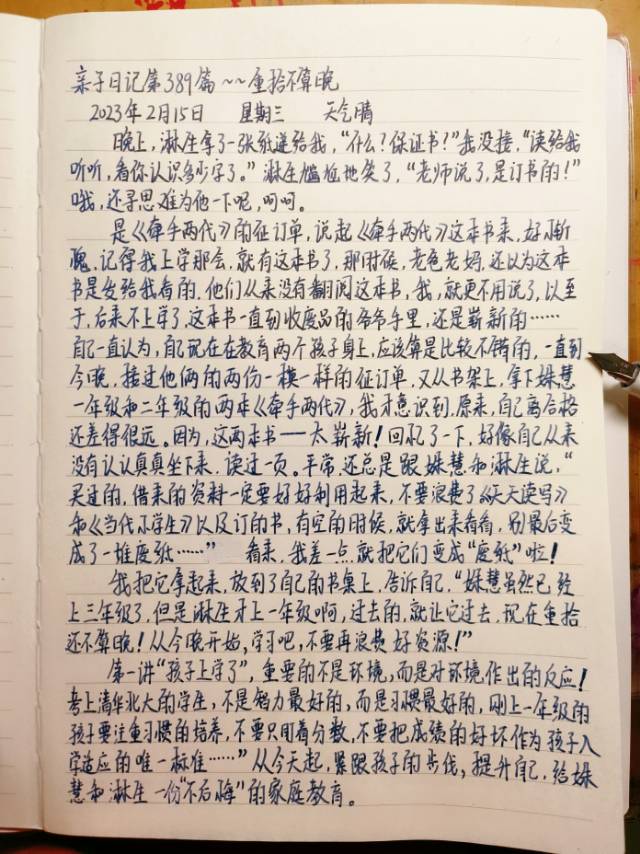 亲子日记第389篇~~重拾不算晚
2023年2月15日 星期三 天气晴
晚上,淋生拿了一张纸递给我,“什么?保证书?”我没接,“读给我
听听,看你认识多少字了。”淋生尴尬地笑了,“老师说了,是订书的!”
哦,还寻思难为他一下呢,呵呵。
是《牵手两代》的征订单,说起《牵手两代》这本书来,好惭
愧,记得我上学那会,就有这本书了,那时候,老爸老妈,还以为这本
书是发给我看的,他们从来没有翻阅这本书,我,就更不用说了,以至
于,后来不上学了,这本书一直到收废品的爷爷手里,还是崭新的……
自己一直认为,自己现在在教育两个孩子身上,应该算是比较不错的,一直到
今晚,接过他俩的两份一模一样的征订单,又从书架上,拿下姝慧
一年级和二年级的两本《牵手两代》,我才意识到,原来,自己离合格
还差得很远。因为,这两本书——太崭新!回忆了一下,好像自己从来
没有认认真真坐下来,读过一页。平常,还总是跟姝慧和淋生说,“
买过的,借来的资料一定要好好利用起来,不要浪费了《天天读写》
和《当代小学生》以及订的书,有空的时候,就拿出来看看,别最后变
成了一堆废纸……” 看来,我差一点就把它们变成“废纸”啦!
我把它拿起来,放到了自己的书桌上,告诉自己,“姝慧虽然已经
上三年级了,但是淋生才上一年级啊,过去的,就让它过去,现在重拾
还不算晚!从今晚开始,学习吧,不要再浪费好资源!”
第一讲“孩子上学了”,重要的不是环境,而是对环境作出的反应!
考上清华北大的学生,不是智力最好的,而是习惯最好的,刚上一年级的
孩子要注重习惯的培养,不要只用着分数,不要把成绩的好坏作为孩子入
学适应的唯一标准……”从今天起,紧跟孩子的步伐,提升自己,给姝
慧和淋生一份“不后悔”的家庭教育。